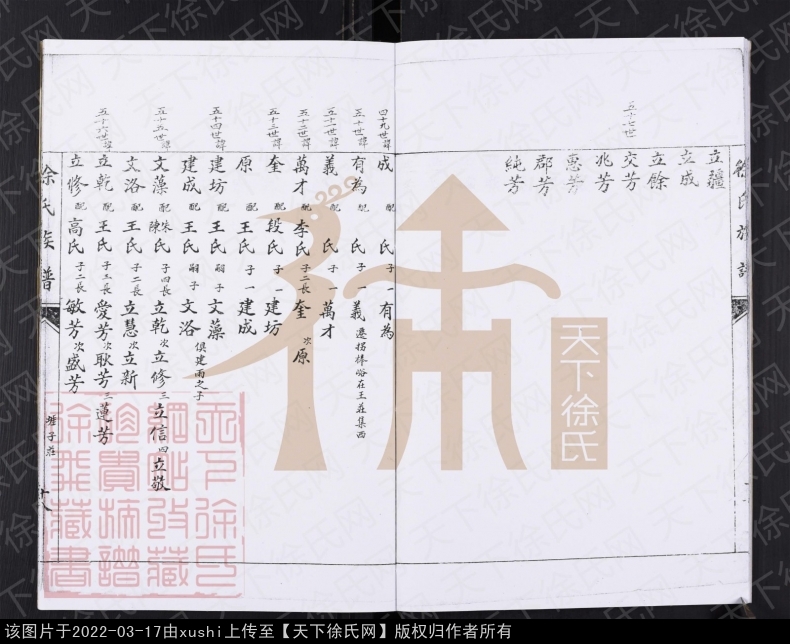 徐氏族譜
立疆
立成
立餘
五十七世
交芳
兆芳
惠芳
郡芳
純芳
四十九世諱 成 配 氏 子一 有為
五十世諱 有為 配 氏 子一 義 遷拐棒峪在王莊集西
五十一世諱 義 配 氏 子一 萬才
五十二世諱 萬才 配 李氏 子二長 奎 次 原
五十三世諱 奎 配 段氏 子一 建坊
原 配 王氏 子一 建成
五十四世諱 建坊 配 王氏 嗣子 文藻
建成 配 王氏 嗣子 文洛 俱建雨之子
五十五世諱 文藻 配 朱陳氏 子四長 立乾 次 立修 三 立信 四 立敬
文洛 配 王氏 子二長 立慧 次 立新
五十六世諱 立乾 配 王氏 子三長 愛芳 次 耿芳 三 蓮芳
立修 配 高氏 子二長 敏芳 次 盛芳
徐氏族譜
莊子
十八
天下徐氏
天下徐氏网
该图片于2022-03-17由xushi上传至【天下徐氏网】版权归作者所有